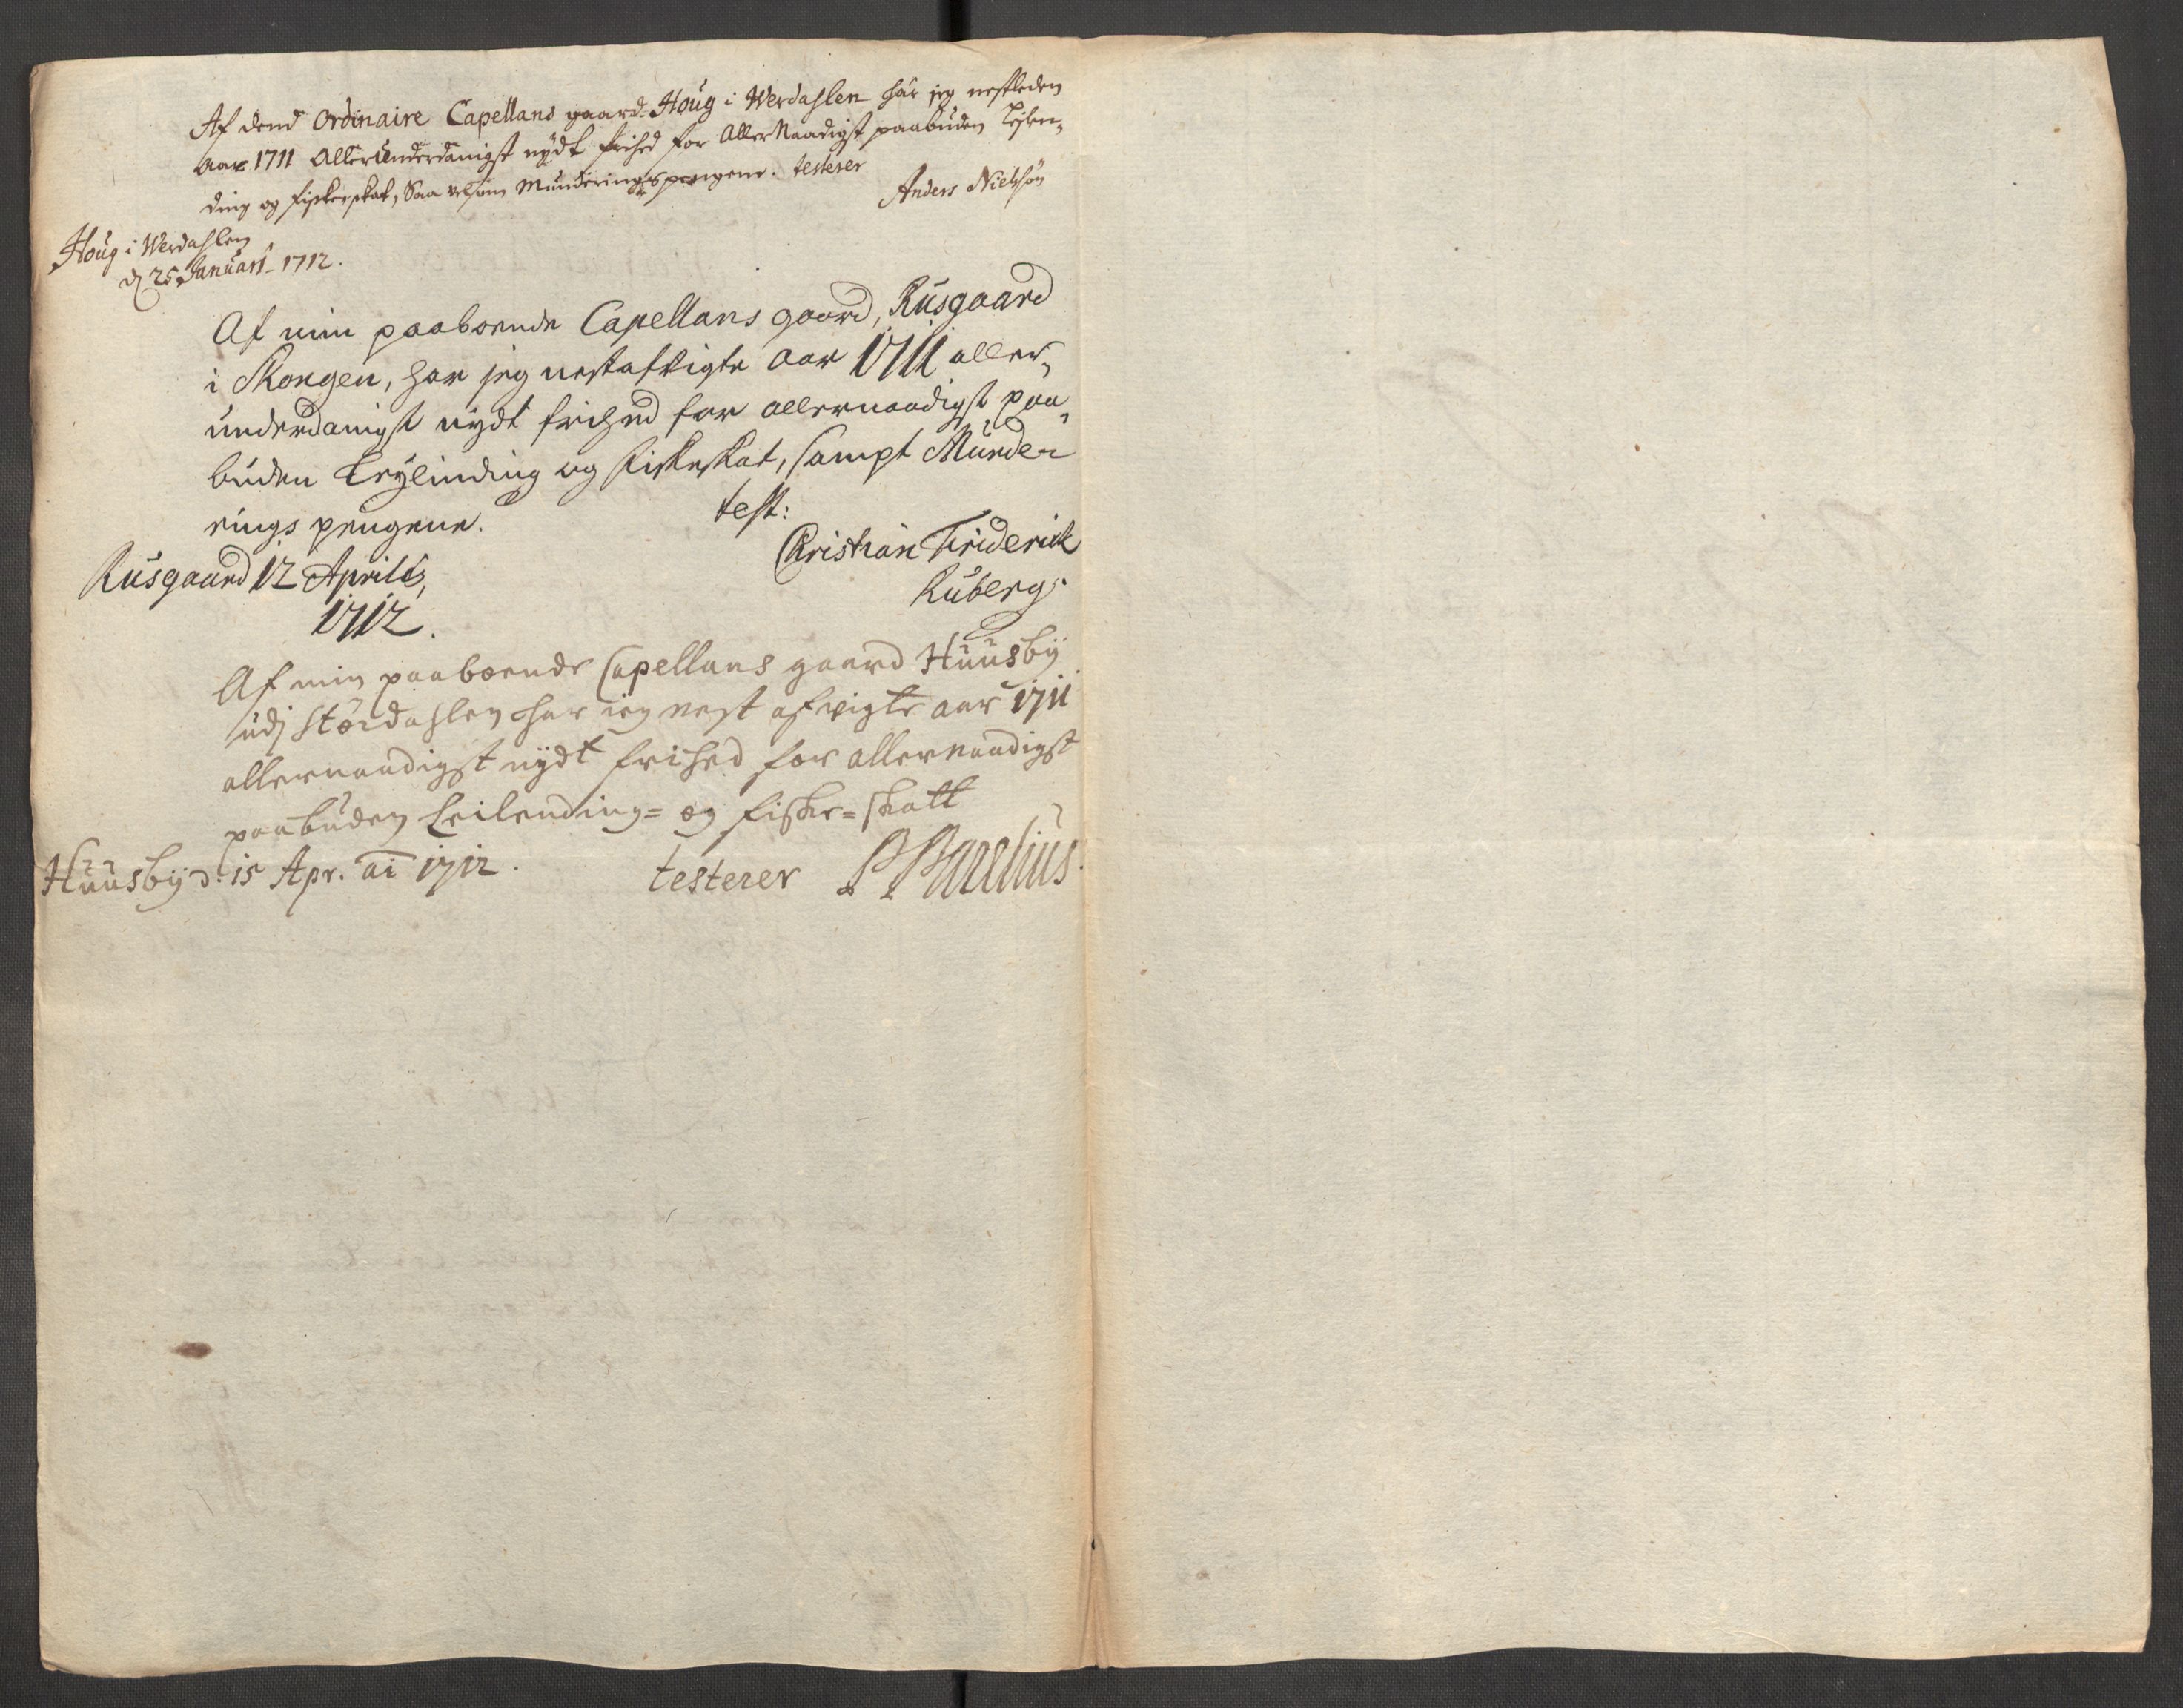 Af dend Ordinaire Capellans gaard Houg i Werdahlen har jeg nestleden
aar 1711 Allerunderdanigst nydt frihed for Allernaadigst paabuden Lejlen-
ding og fiskerskat, Saa velsom Munderings pengene. testerer
Anders Nielsøn
Houg i Werdahlen
d 25 Januarj 1712.
Af min paaboende Capellans gaard, Rusgaard
i Skongen, har jeg nestafvigte Aar 1711 aller-
underdanigst nydt frihed for allernaadigst paa-
buden Leylinding og fiskeskat, sampt Munde-
rings pengene.
test:
Christian Friderick
Ruberg.
Rusgaard 12 Aprilis,
1712.
Af min paaboende Capellans gaard Huusby
udj Størdahlen har ieg nest afvigte aar 1711
allernaadigst nydt frihed for allernaadigst
paabuden Leilending= og fiske=skatt
Huusby d. 15 Apr. ai 1712. testerer P Parelius.